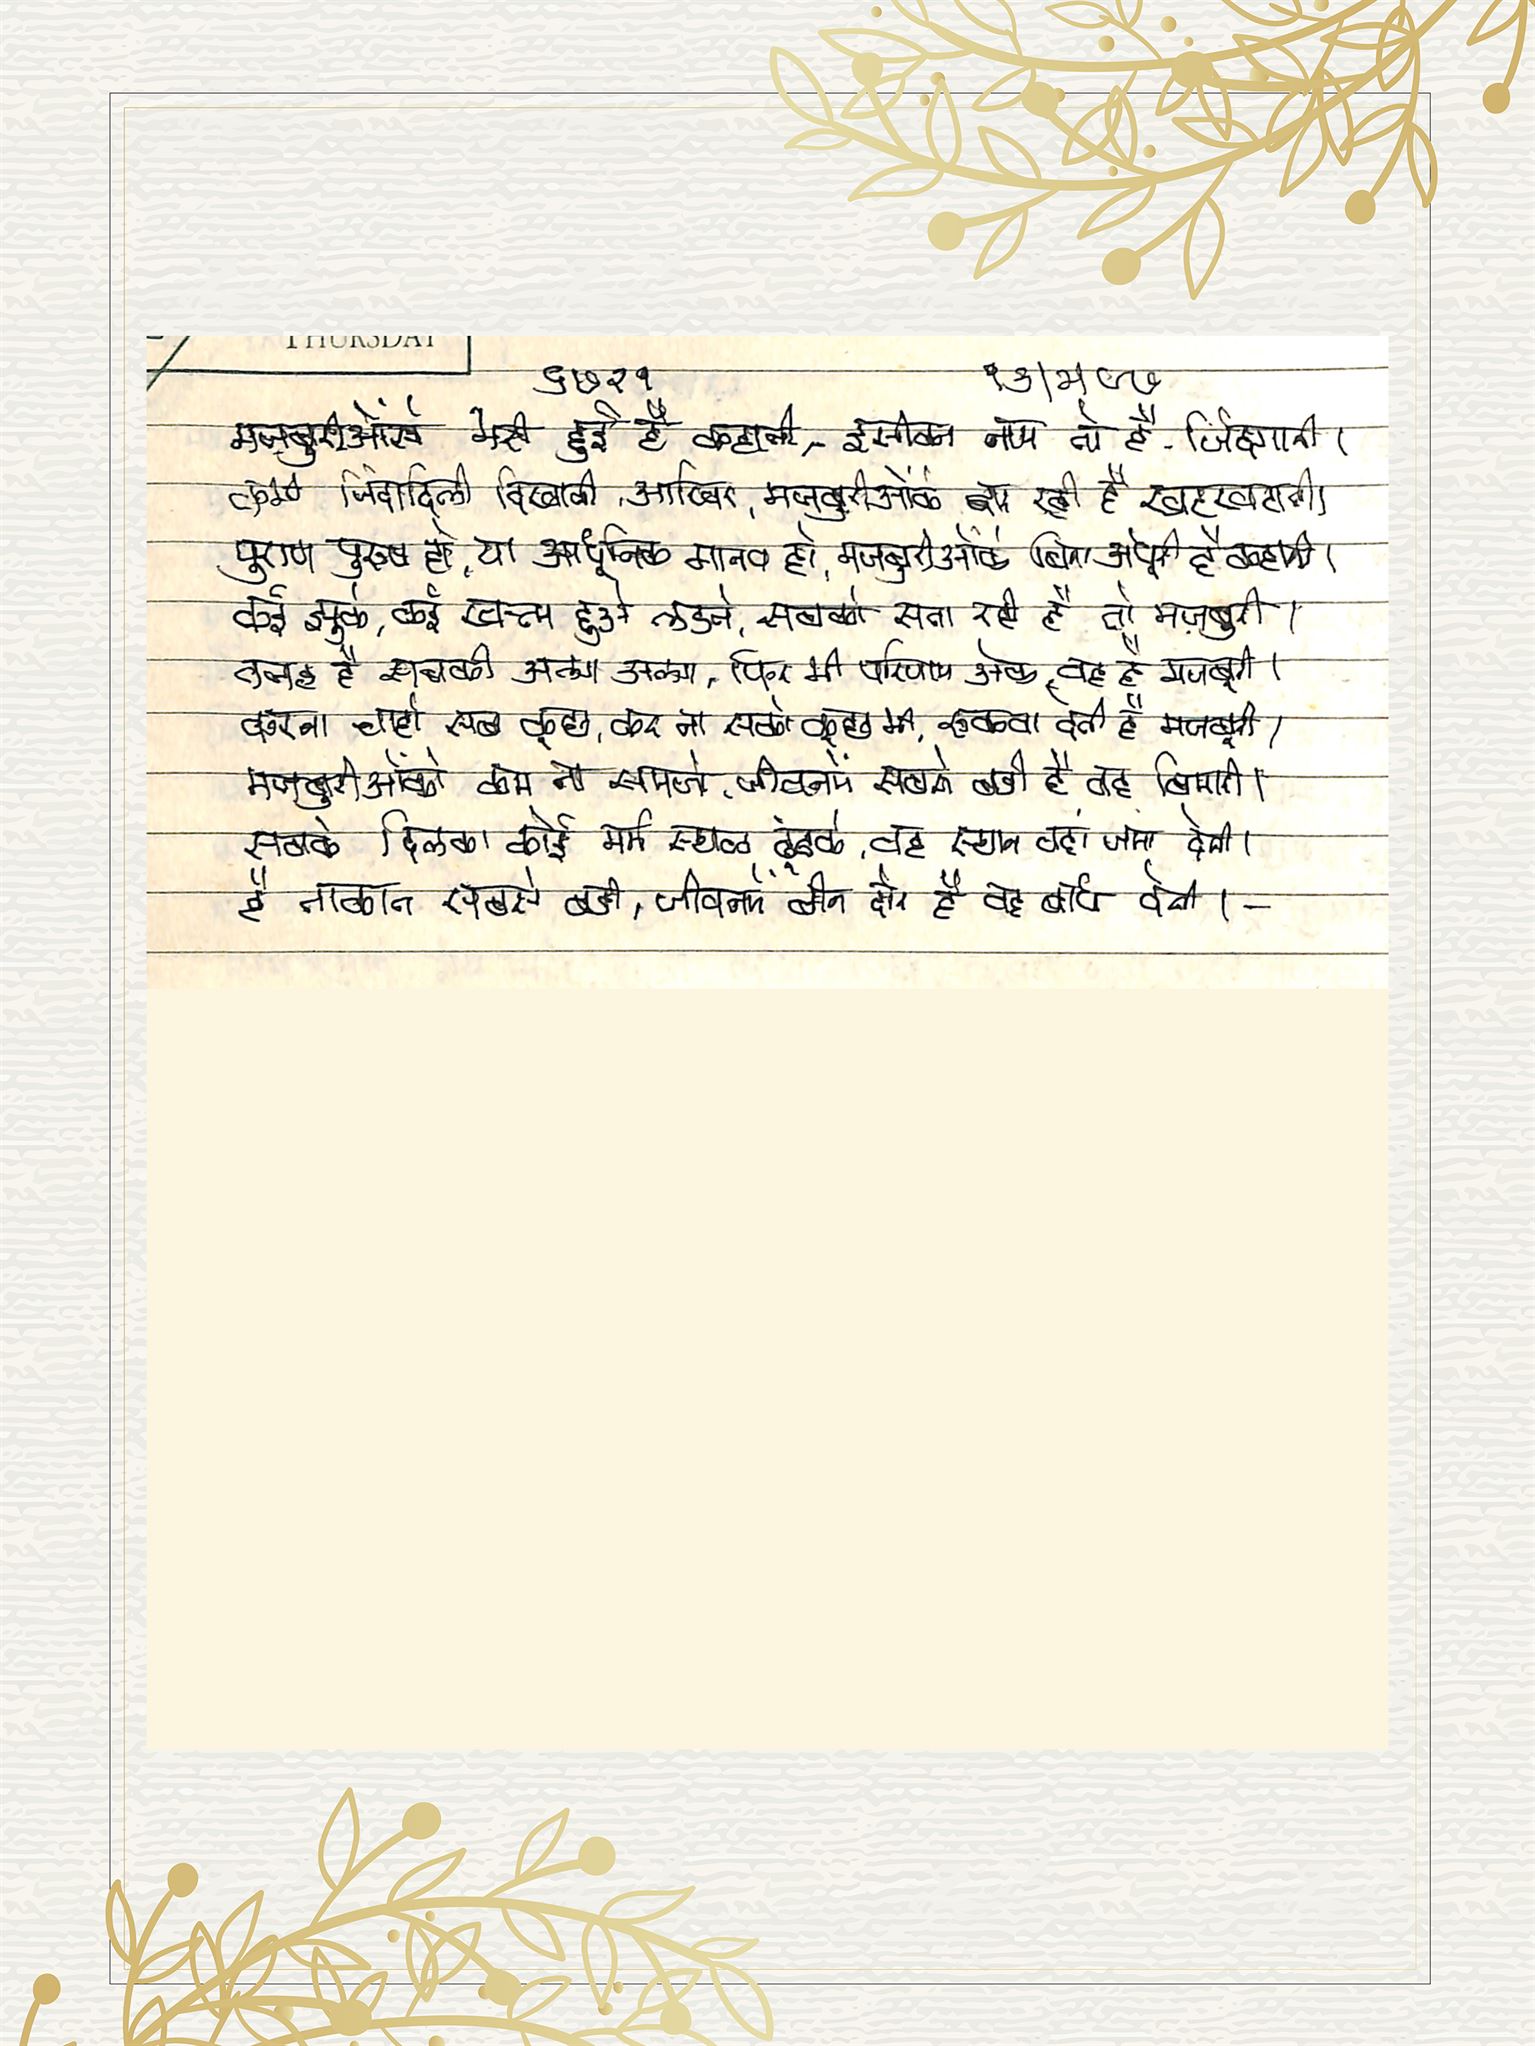 THURSDAY
६७२१
मजबुरीओंसे भरी हुई है कहानी, - इसीका नाम तो है - जिंदगानी।
जिंदादिली दिखाकी, आखिर, मजबुरीओंके रही है
पुराण पुरुष हो, या आधूनिक मानव हो, मजबुरीओंके बिना अधूरी है कहानी।
कई झुके, कई खत्म हुओ लडते, सबको सता रही है तो मजबुरी।
वजह है सबकी अलग अलग, फिर भी परिणाम ओक, वह है मजबूरी।
करना चाहो सब कूछ, कर ना सको कूछ भी, रुकवा देती है मजबूरी।
मजबुरीओंको कम ना समजो, जीवनमें सबसे बडी है वह बिमारी।
सबके दिलका कोई मर्म स्थळ ढूंडके, वह स्थान वहां जमा देती।
है ताकात सबसे बडी, जीवनमें कौन और है वह बांध देती। -